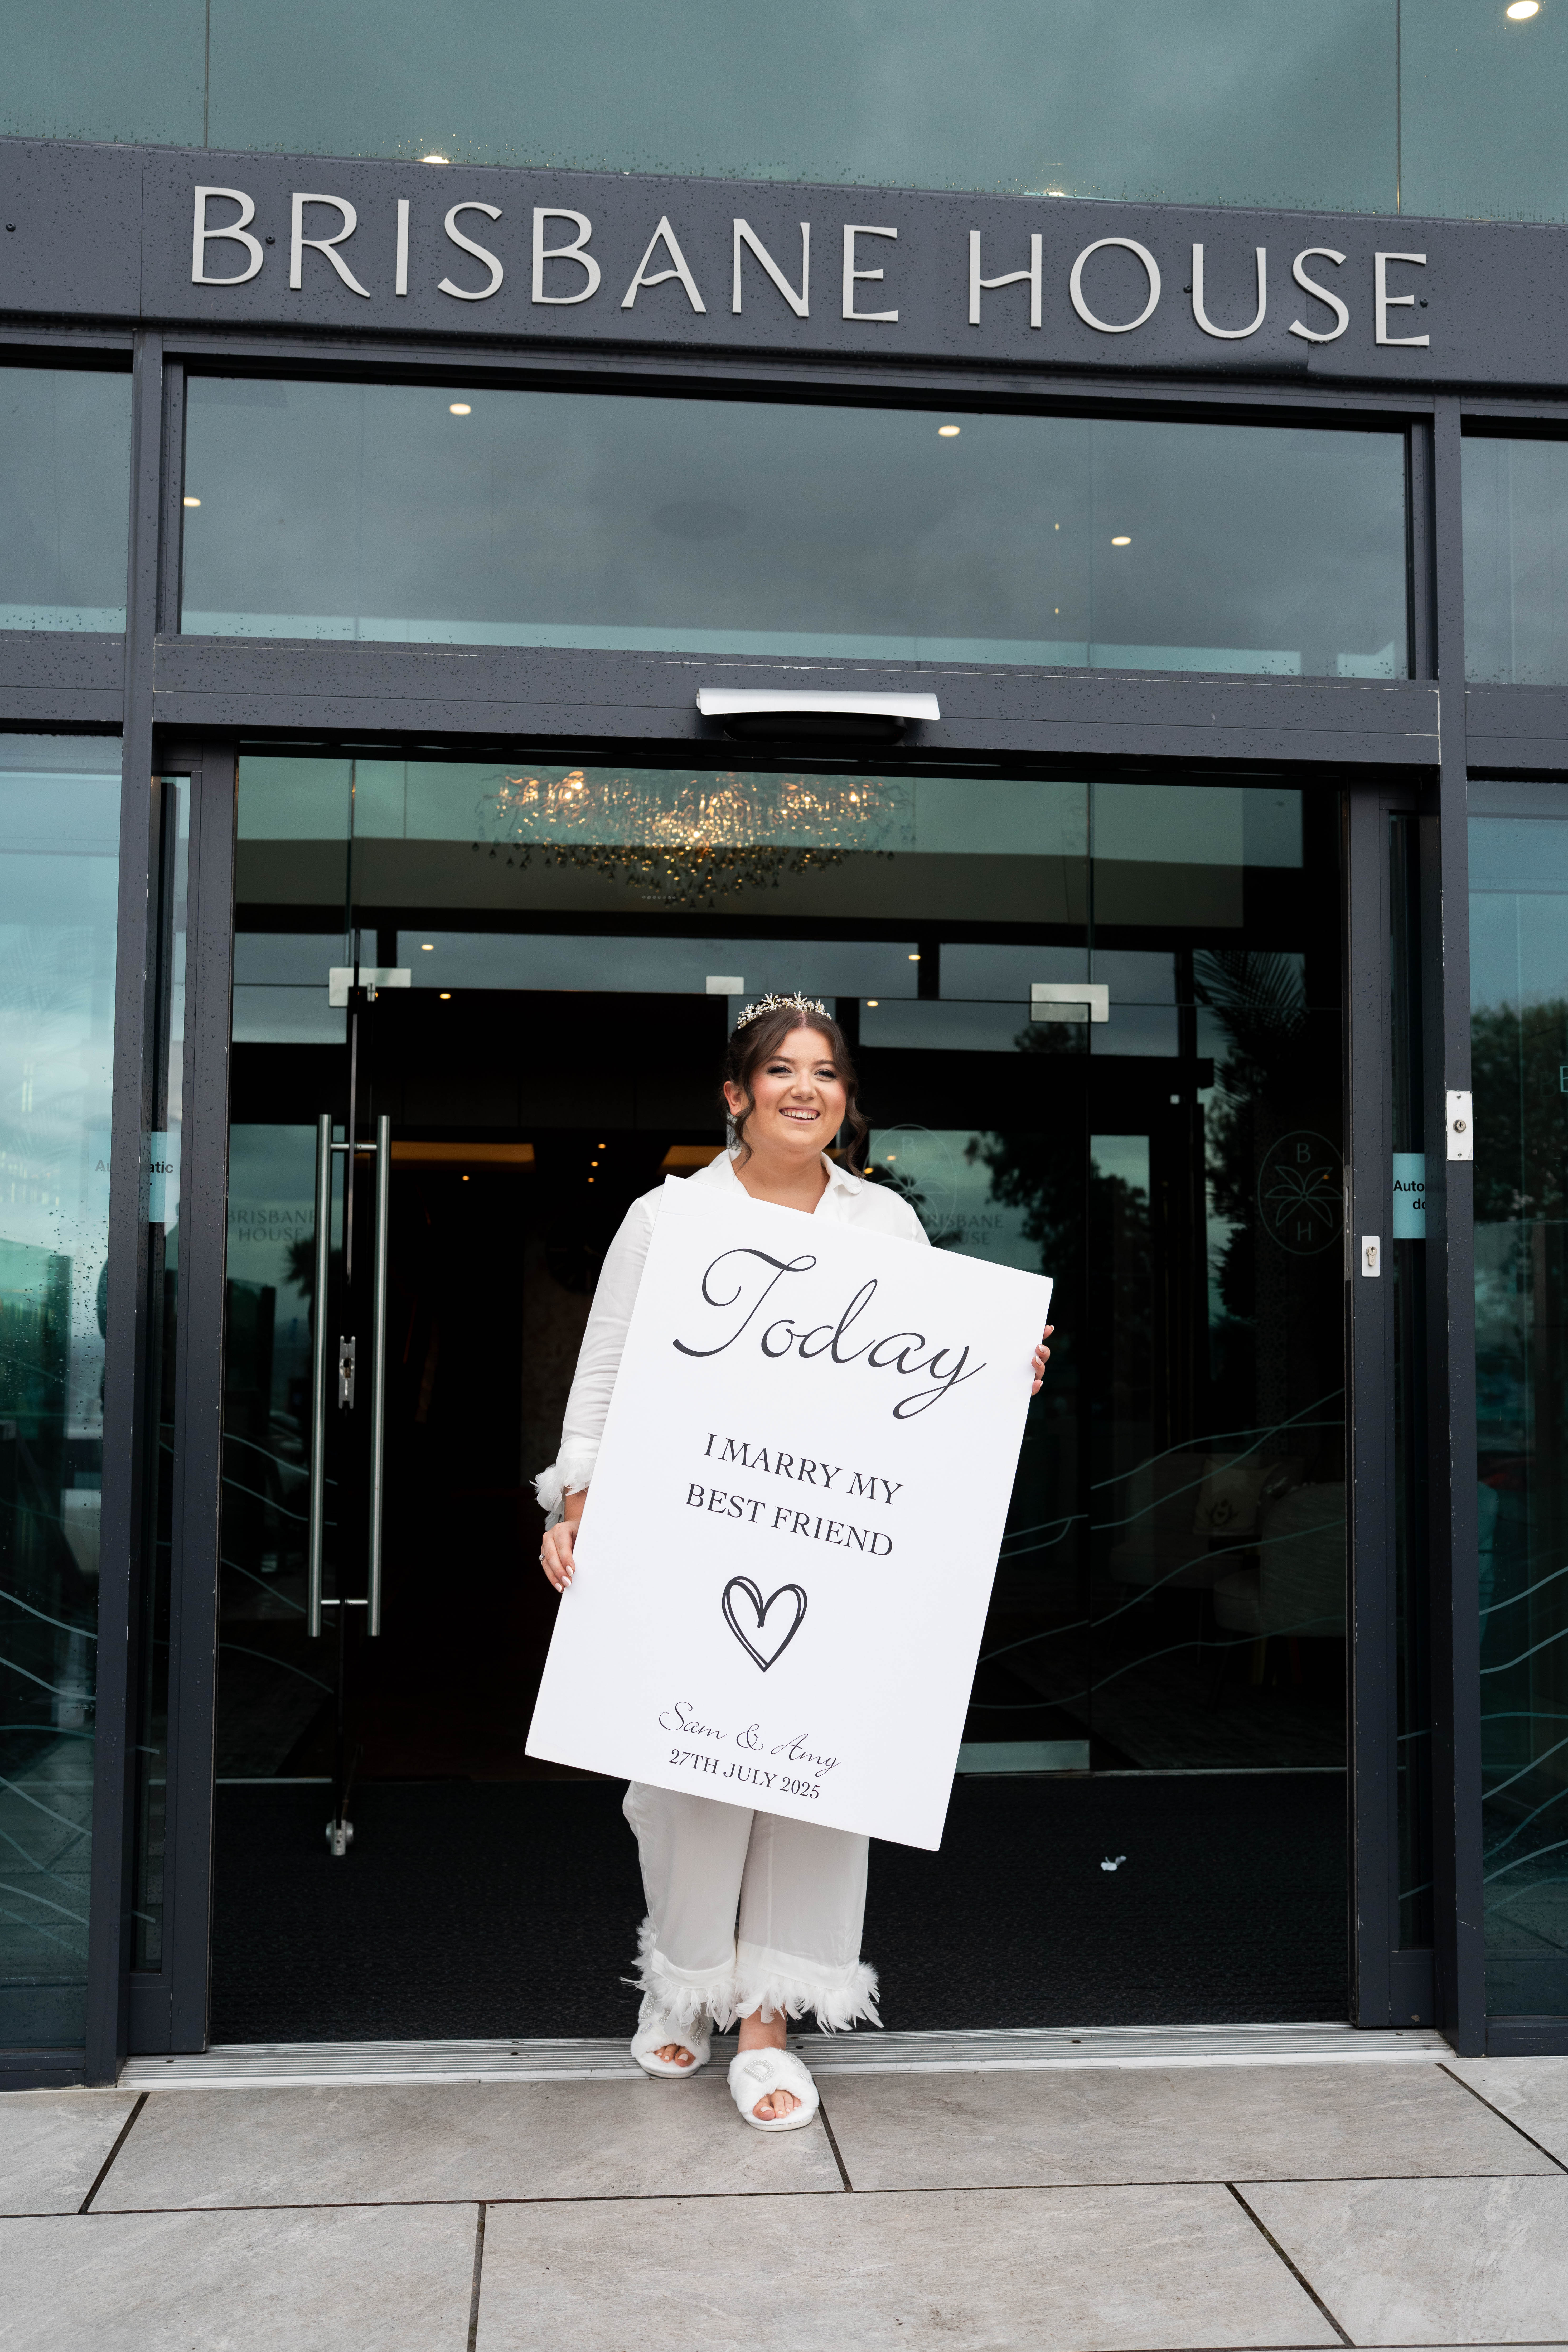 BRISBANE HOUSE
Automatic
BRISBANE
HOUSE
B
H
BRISBANE
HOUSE
B
H
Auto
do
Today
I MARRY MY
BEST FRIEND
Sam & Amy
27TH JULY 2025